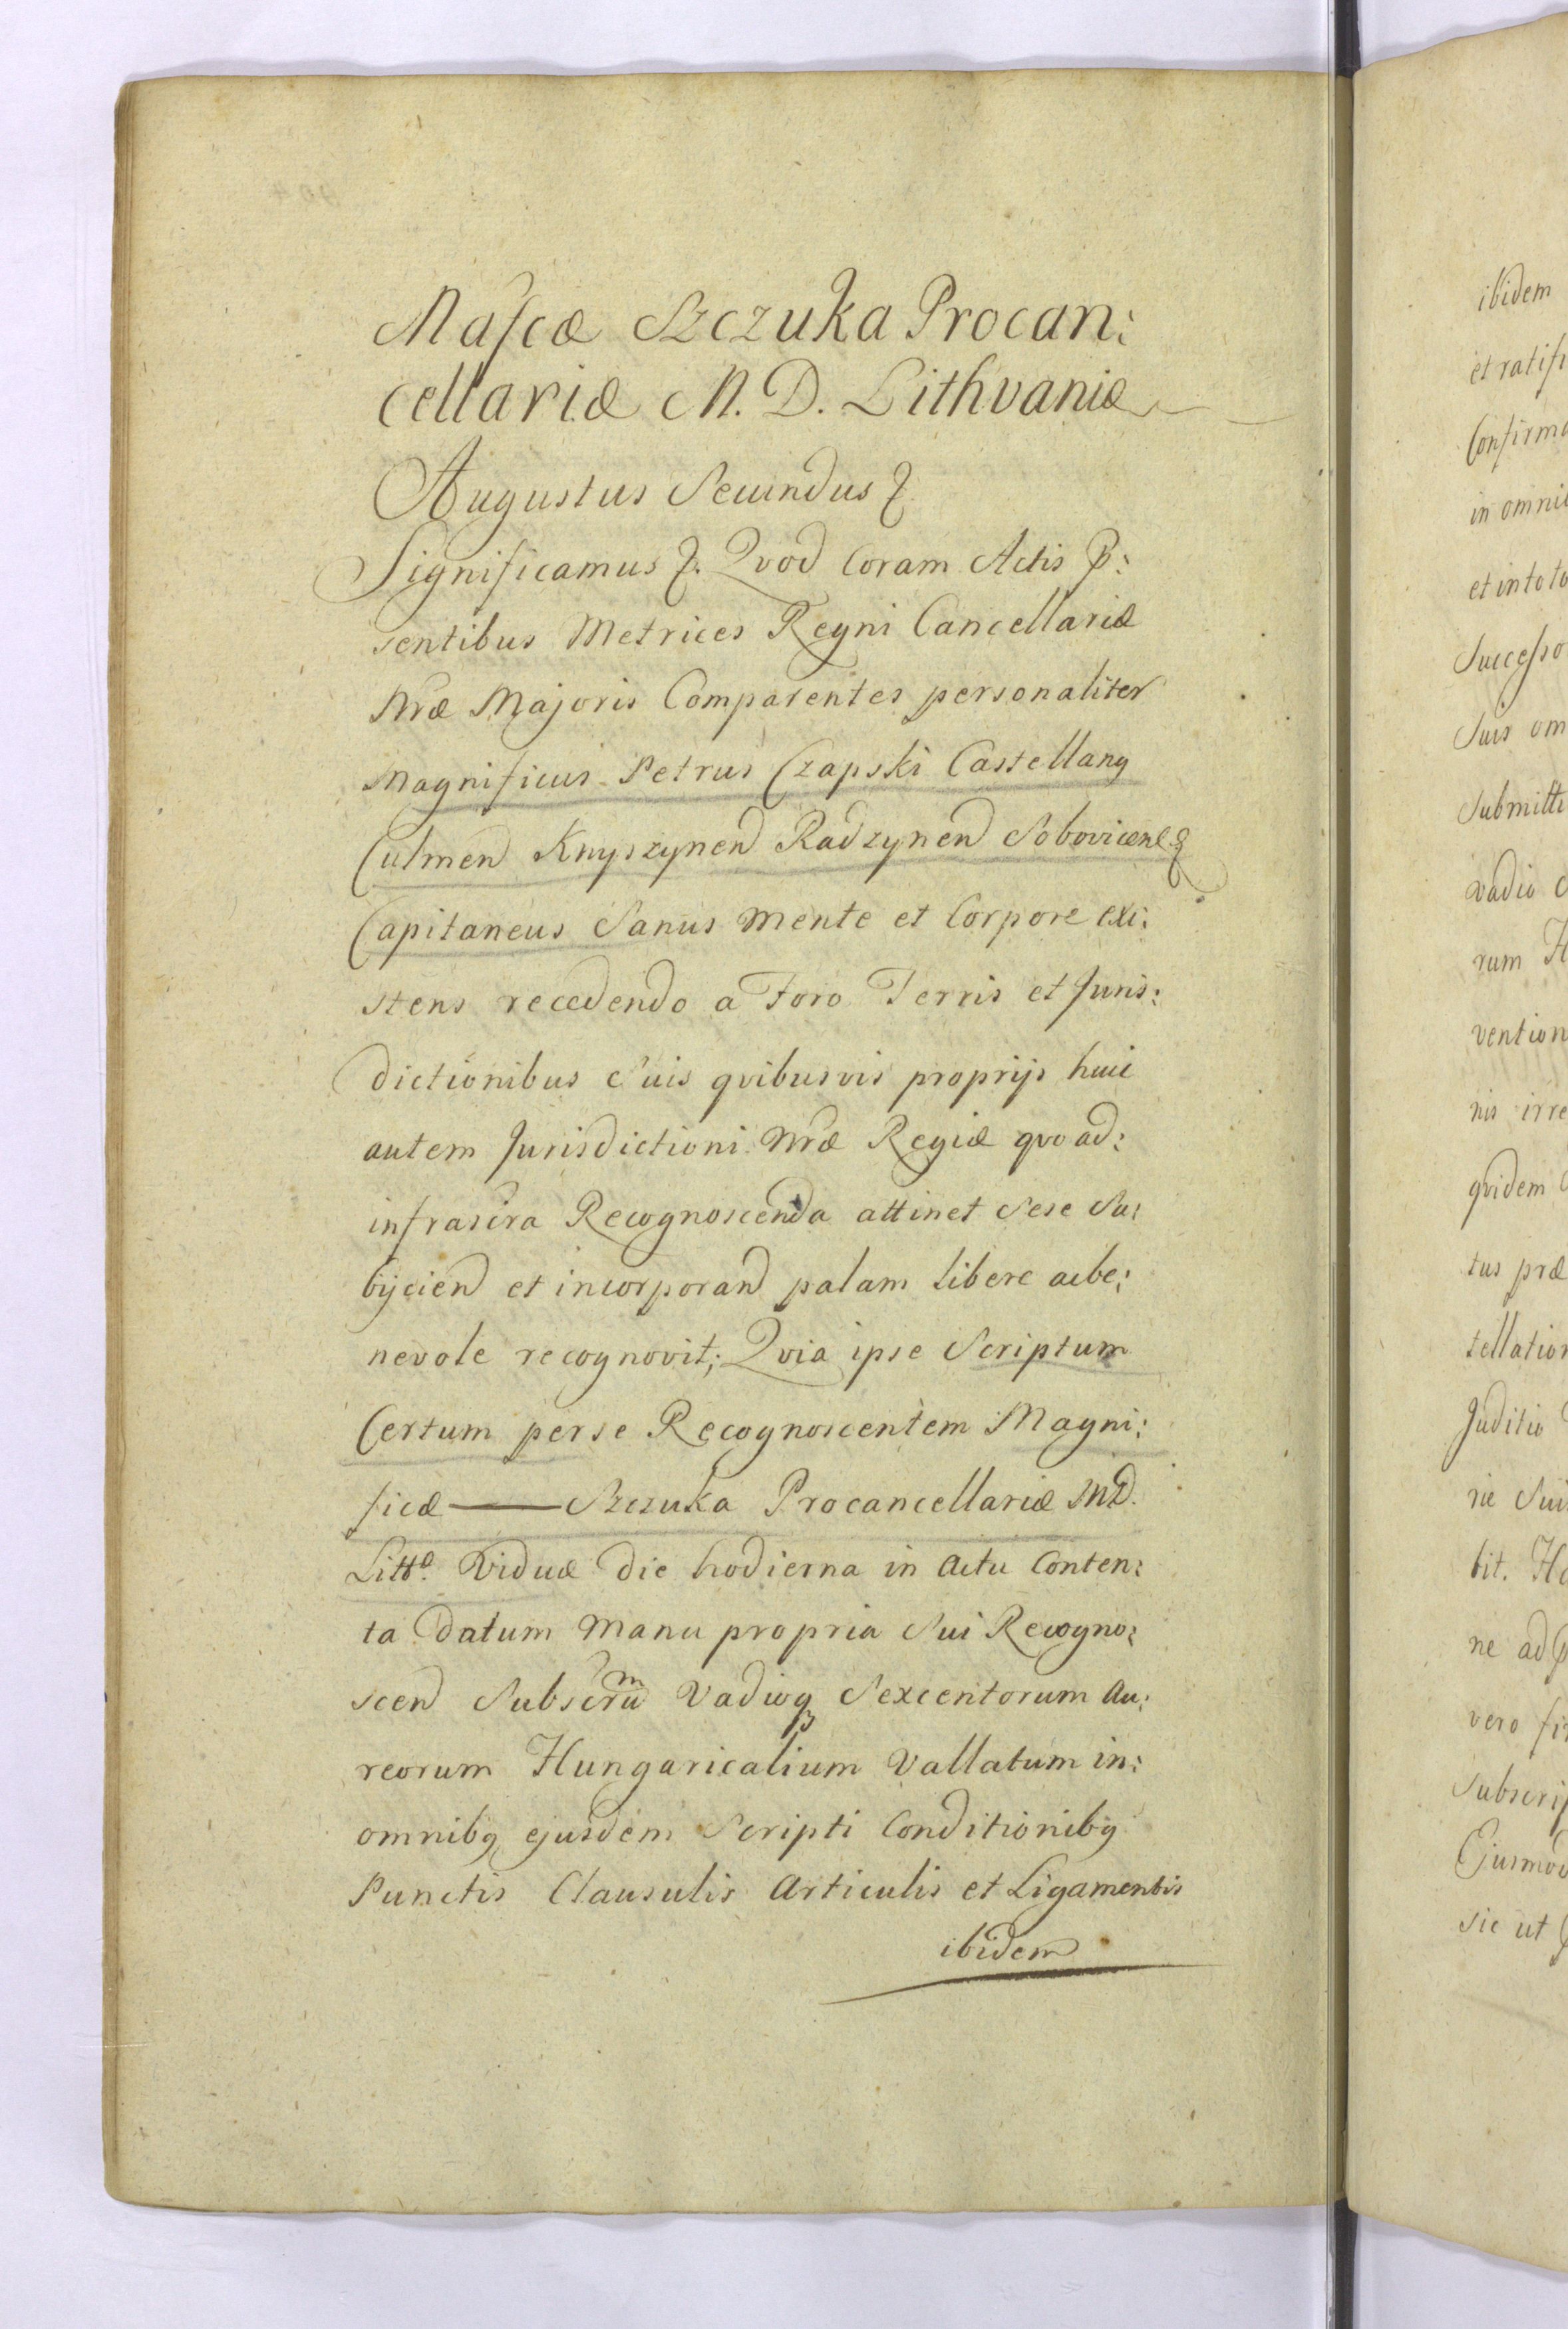 Mafcæ Szczuka Procan:
cellariæ M. D. Lithvaniæ
Augustus Secundus &.
Significamus &. Qvod Coram Actis P:
sentibus Metrices Regni Cancellariæ
Nræ Majoris Comparentes personaliter
Magnificus Petrus Czapski Castellanꝯ
Culmen Knyszynen Radzynen Sobovicen &
Capitaneus Sanus Mente et Corpore exi:
stens recedendo a Foro Terris et Juris:
dictionibus Suis qvibusvis proprijs huic
autem Jurisdictioni Nræ Regiæ qvo ad:
infrascra Recognoscenda attinet Sese Su:
bijcien et incorporan palam libere acbe:
nevole recognovit; Qvia ipse Scriptum
Certum per se Recognoscentem Magni:
ficæ — Szczuka Procancellariæ MD.
Litt. Viduæ die hodierna in Actu Conten:
ta datum Manu propria Sui Recogno:
scen Subscrum Vadioq Sexcentorum Au:
reorum Hungaricalium Vallatum in:
omnibꝯ ejusdem Scripti Conditionibꝯ
Punctis Clausulis Articulis et Ligamentis
ibidem
ibidem
et ratifi
Confirma
in omni
et in toto
Successo
Suis om
Submitt
vadio
rum H
vention
nis irre
qvidem
tus præ
tellation
Juditio
rie Sui
bit. H
ne ad p
vero fi
Subscrip
Ejusmod
sic ut